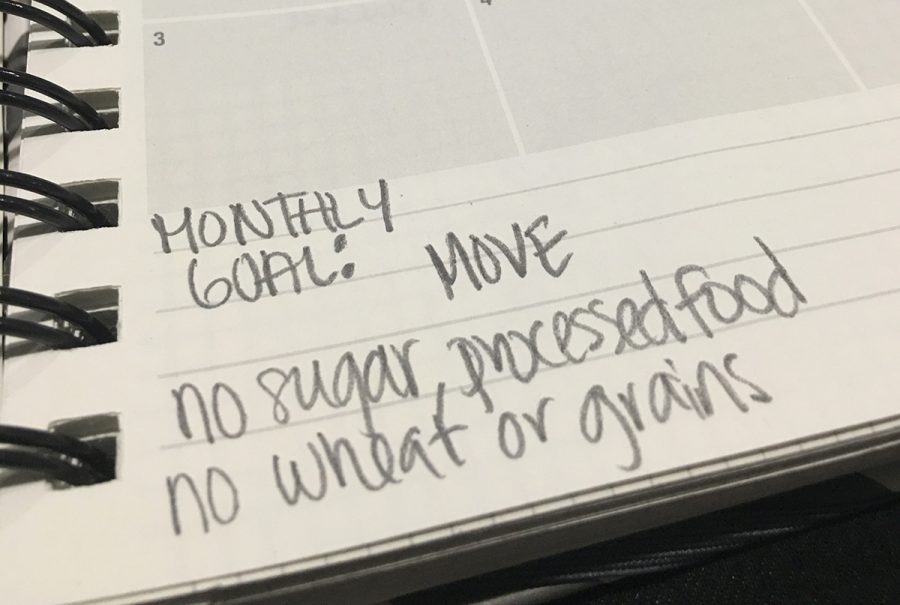 3 4
MONTHLY
GOAL: MOVE
no sugar, processed food
no wheat or grains